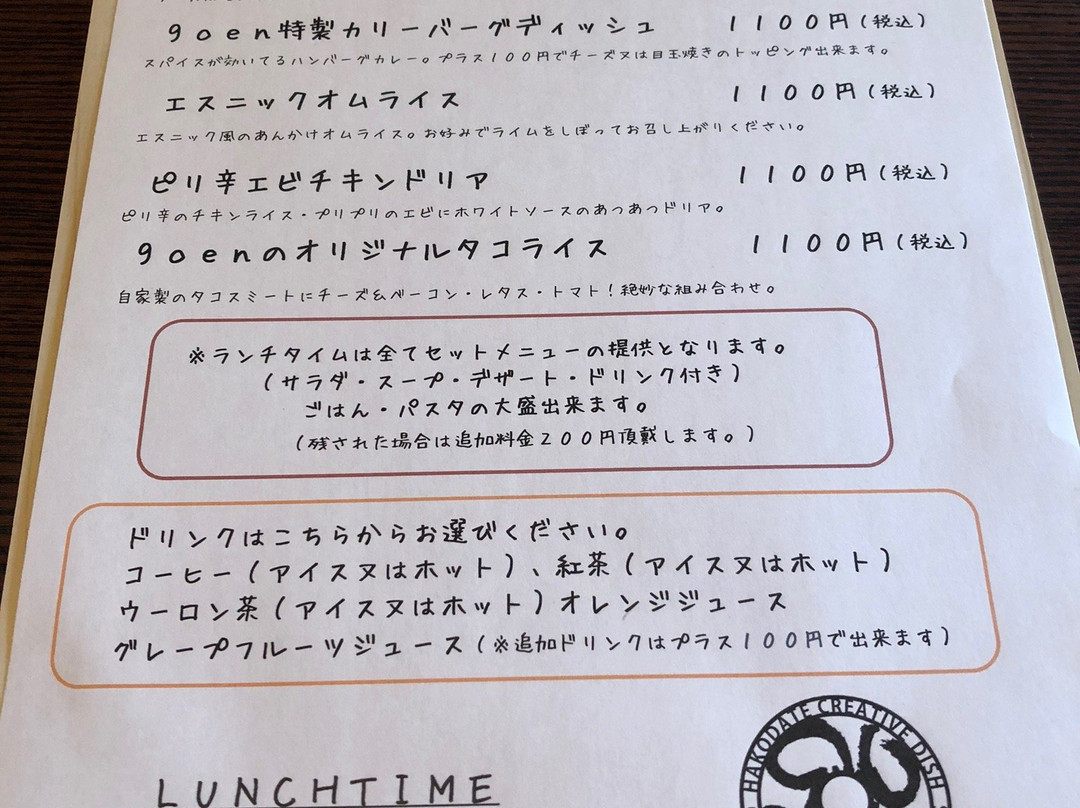 goen特製カリーバーグディッシュ 1100円(税込)
スパイスが効いてるハンバーグカレー。プラス100円でチーズ又は目玉焼きのトッピング出来ます。
エスニックオムライス 1100円(税込)
エスニック風のあんかけオムライス。お好みでライムをしぼってお召し上がりください。
ピリ辛エビチキンドリア 1100円(税込)
ピリ辛のチキンライス・プリプリのエビにホワイトソースのあつあつドリア。
goenのオリジナルタコライス 1100円(税込)
自家製のタコスミートにチーズ&ベーコン・レタス・トマト!絶妙な組み合わせ。
※ランチタイムは全てセットメニューの提供となります。
(サラダ・スープ・デザート・ドリンク付き)
ごはん・パスタの大盛出来ます。
(残された場合は追加料金200円頂戴します。)
ドリンクはこちらからお選びください。
コーヒー(アイス又はホット)、紅茶(アイス又はホット)
ウーロン茶(アイス又はホット)オレンジジュース
グレープフルーツジュース(※追加ドリンクはプラス100円で出来ます)
HAKODATE CREATIVE DISH
LUNCHTIME